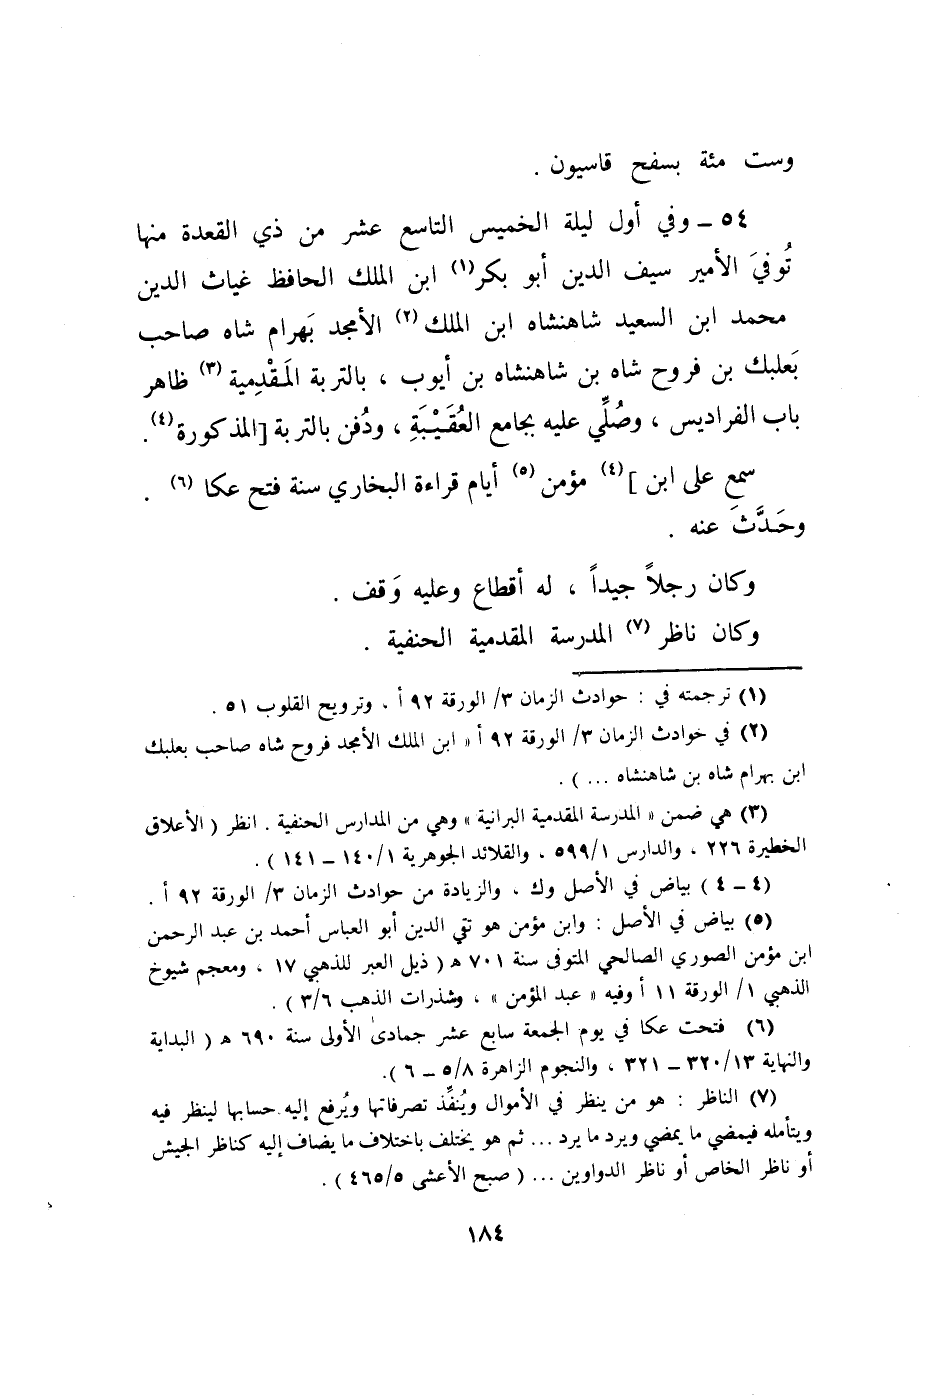 وست مئة بسفح قاسيون .
٥٤ ــ وفي أول ليلة الخميس التاسع عشر من ذي القعدة منها
تُوفيَ الأمير سيف الدين أبو بكر(١) ابن الملك الحافظ غياث الدين
محمد ابن السعيد شاهنشاه ابن الملك(٢) الأمجد بَهرام شاه صاحب
بَعلبك بن فروح شاه بن شاهنشاه بن أيوب ، بالتربة المَقْدِمية(٣) ظاهر
باب الفراديس ، وصُلِّي عليه بجامع العُقَيْبَةِ ، ودُفن بالتربة [المذكورة(٤) .
سمع على ابن ](٤) مؤمن(٥) أيام قراءة البخاري سنة فتح عكا(٦) .
وحَدَّثَ عنه .
وكان رجلاً جيداً ، له أقطاع وعليه وَقف .
وكان ناظر(٧) المدرسة المقدمية الحنفية .
(١) ترجمته في : حوادث الزمان ٣/ الورقة ٩٢ أ ، وترويح القلوب ٥١ .
(٢) في حوادث الزمان ٣/ الورقة ٩٢ أ « ابن الملك الأمجد فروح شاه صاحب بعلبك
ابن بهرام شاه بن شاهنشاه ... ) .
(٣) هي ضمن « المدرسة المقدمية البرانية » وهي من المدارس الحنفية . انظر ( الأعلاق
الخطيرة ٢٢٦ ، والدارس ٥٩٩/١ ، والقلائد الجوهرية ١٤٠/١ ــ ١٤١ ) .
(٤ ــ ٤ ) بياض في الأصل وك ، والزيادة من حوادث الزمان ٣/ الورقة ٩٢ أ .
(٥) بياض في الأصل : وابن مؤمن هو تقي الدين أبو العباس أحمد بن عبد الرحمن
ابن مؤمن الصوري الصالحي المتوفى سنة ٧٠١ ه ( ذيل العبر للذهبي ١٧ ، ومعجم شيوخ
الذهبي ١/ الورقة ١١ أ وفيه « عبد المؤمن » ، وشذرات الذهب ٣/٦ ) .
(٦) فتحت عكا في يوم الجمعة سابع عشر جمادىٰ الأولى سنة ٦٩٠ ه ( البداية
والنهاية ٣٢٠/١٣ ــ ٣٢١ ، والنجوم الزاهرة ٥/٨ ــ ٦ ).
(٧) الناظر : هو من ينظر في الأموال ويُنفِّذ تصرفاتها ويُرفع إليه حسابها لينظر فيه
ويتأمله فيمضي ما يمضي ويرد ما يرد ... ثم هو يختلف باختلاف ما يضاف إليه كناظر الجيش
أو ناظر الخاص أو ناظر الدواوين ... ( صبح الأعشى ٤٦٥/٥ ) .
١٨٤